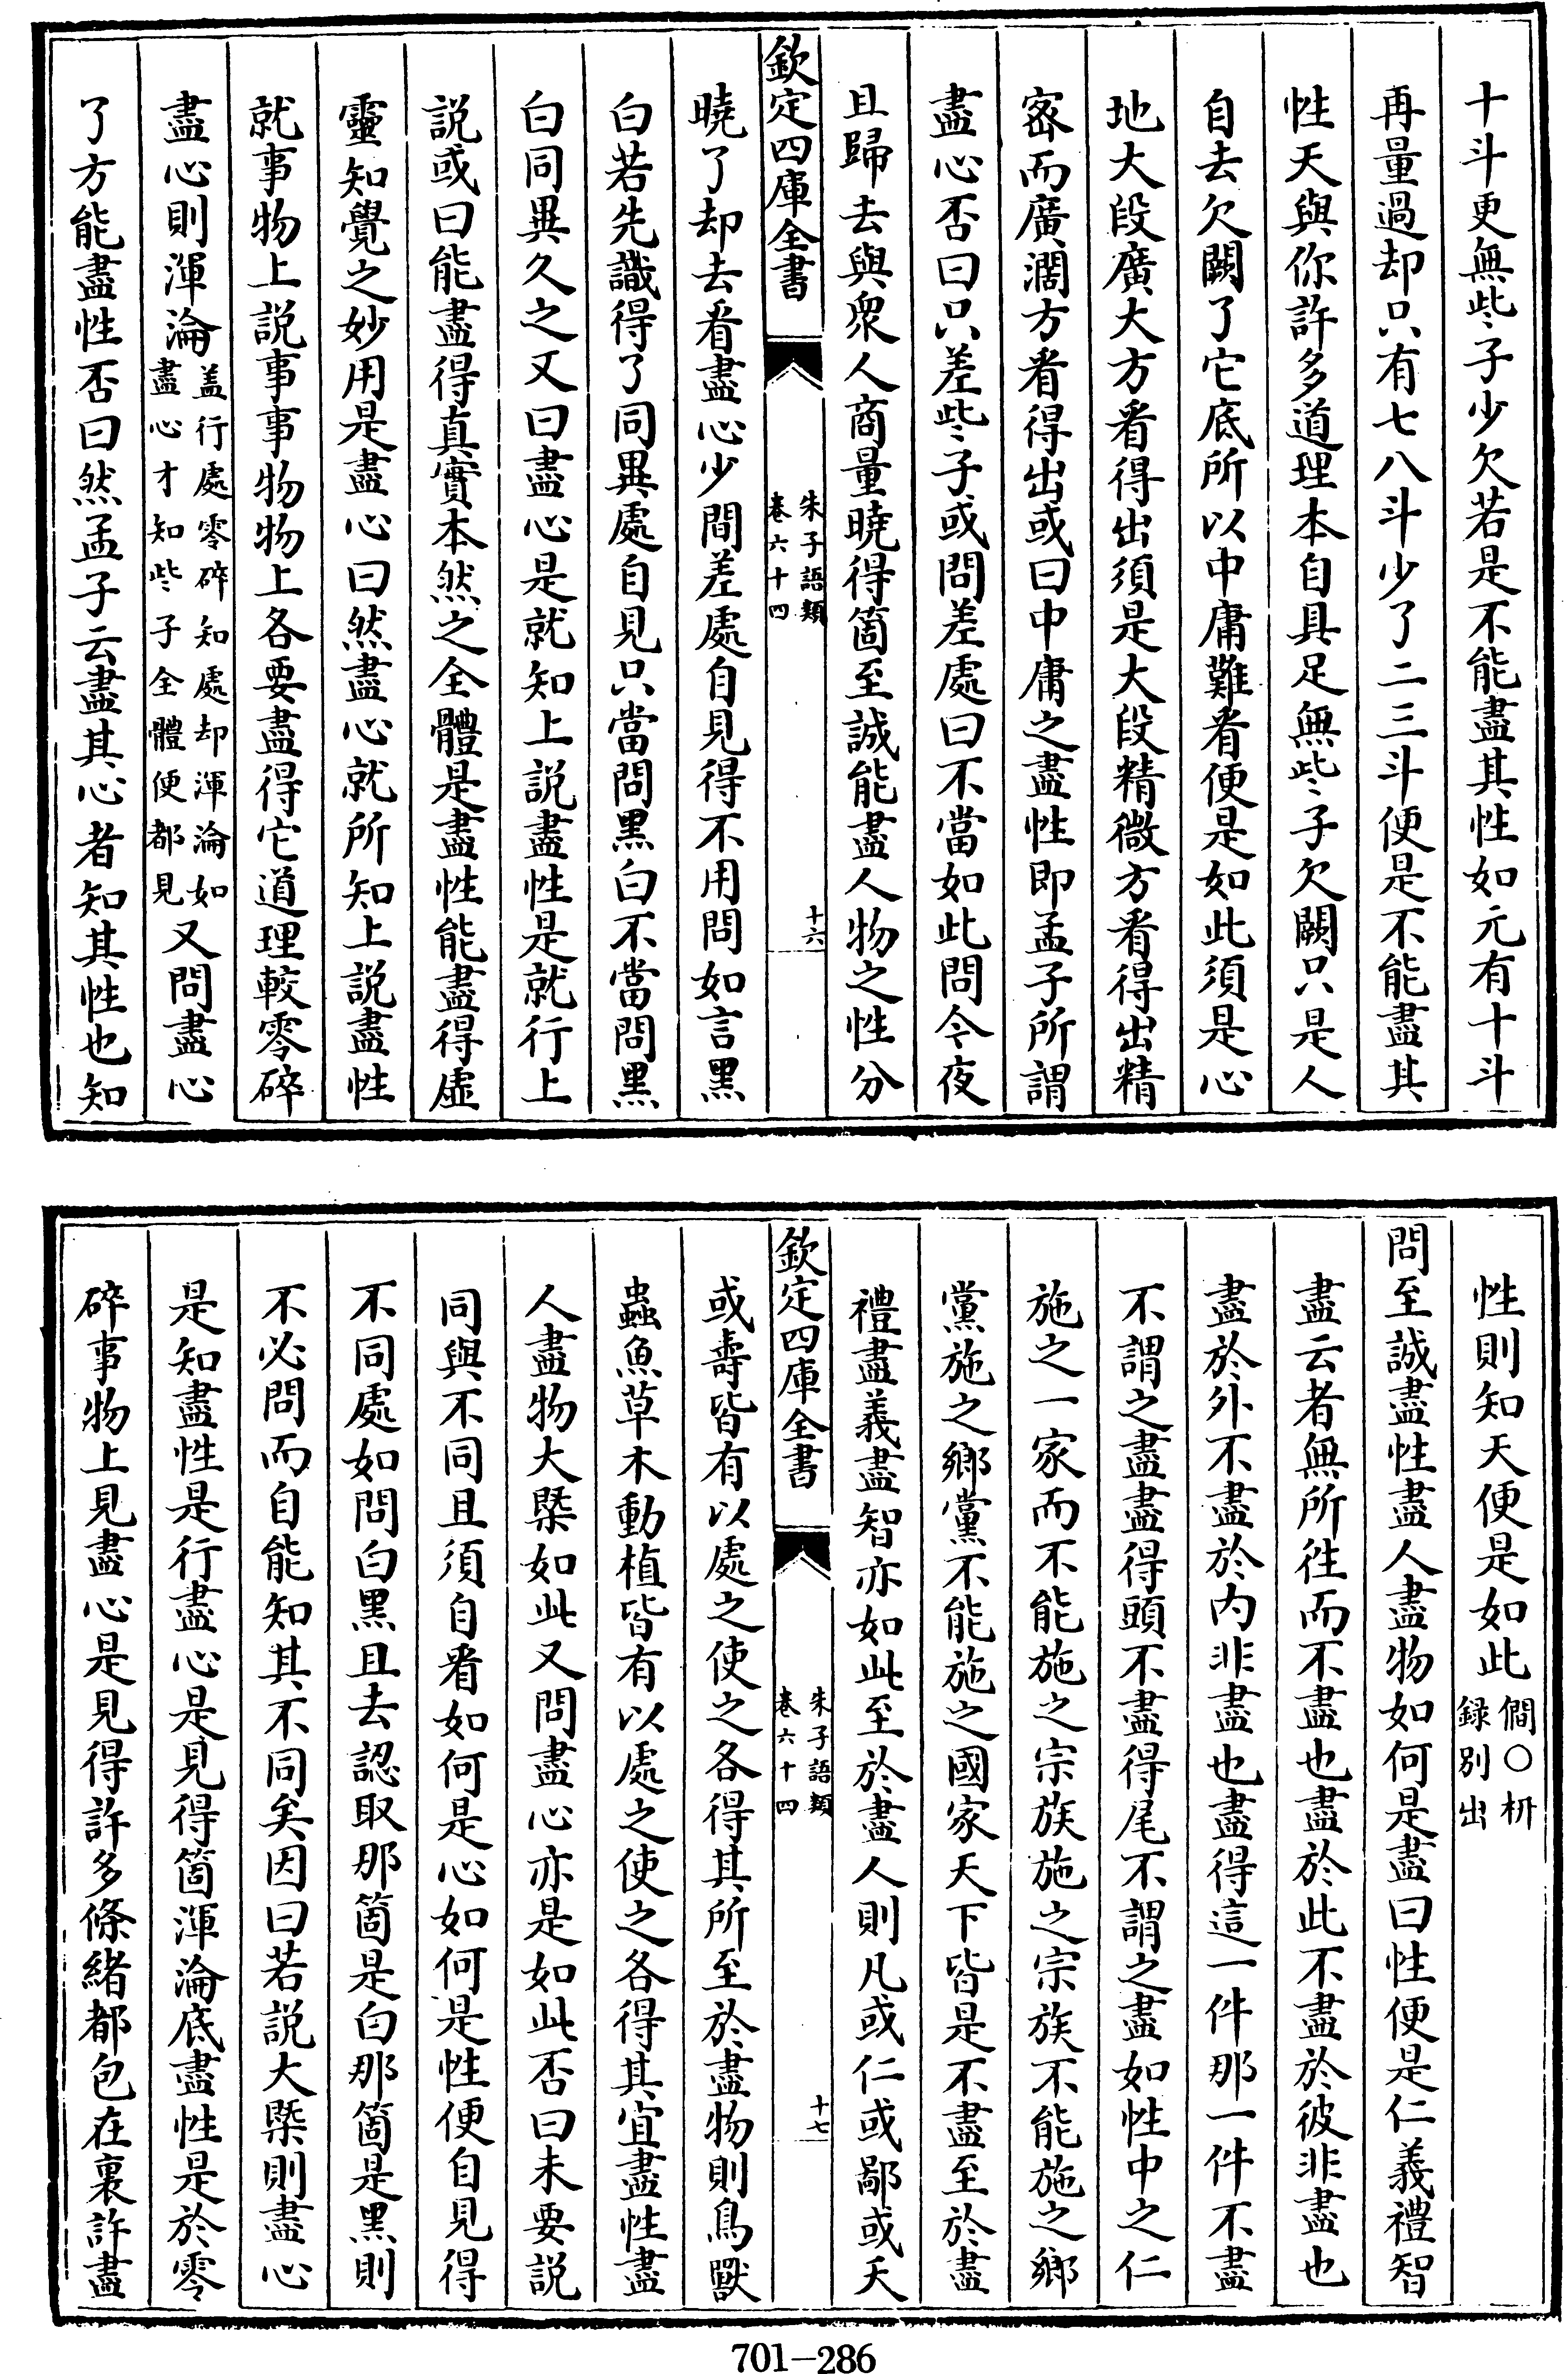 十斗更無些子少欠若是不能盡其性如元有十斗
再量過却只有七八斗少了二三斗便是不能盡其
性天與你許多道理本自具足無些子欠闕只是人
自去欠闕了它底所以中庸難看便是如此須是心
地大段廣大方看得出須是大段精微方看得出精
宻而廣濶方看得出或曰中庸之盡性即孟子所謂
盡心否曰只差些子或問差處曰不當如此問今夜
且歸去與衆人商量曉得箇至誠能盡人物之性分
欽定四庫全書
朱子語類
卷六十四
十六
曉了却去看盡心少間差處自見得不用問如言黒
白若先識得了同異處自見只當問黒白不當問黒
白同異久之又曰盡心是就知上説盡性是就行上
説或曰能盡得真實本然之全體是盡性能盡得虚
靈知覺之妙用是盡心曰然盡心就所知上説盡性
就事物上説事事物物上各要盡得它道理較零碎
盡心則渾淪
盖行處零碎知處却渾淪如
盡心才知些子全體便都見
又問盡心
了方能盡性否曰然孟子云盡其心者知其性也知
性則知天便是如此
僩○枅
録别出
問至誠盡性盡人盡物如何是盡曰性便是仁義禮智
盡云者無所往而不盡也盡於此不盡於彼非盡也
盡於外不盡於内非盡也盡得這一件那一件不盡
不謂之盡盡得頭不盡得尾不謂之盡如性中之仁
施之一家而不能施之宗族施之宗族不能施之鄉
黨施之鄉黨不能施之國家天下皆是不盡至於盡
禮盡義盡智亦如此至於盡人則凡或仁或鄙或夭
欽定四庫全書
朱子語類
卷六十四
十七
或壽皆有以處之使之各得其所至於盡物則鳥獸
蟲魚草木動植皆有以處之使之各得其宜盡性盡
人盡物大槩如此又問盡心亦是如此否曰未要説
同與不同且須自看如何是心如何是性便自見得
不同處如問白黒且去認取那箇是白那箇是黒則
不必問而自能知其不同矣因曰若説大槩則盡心
是知盡性是行盡心是見得箇渾淪底盡性是於零
碎事物上見盡心是見得許多條緒都包在裏許盡
701—286